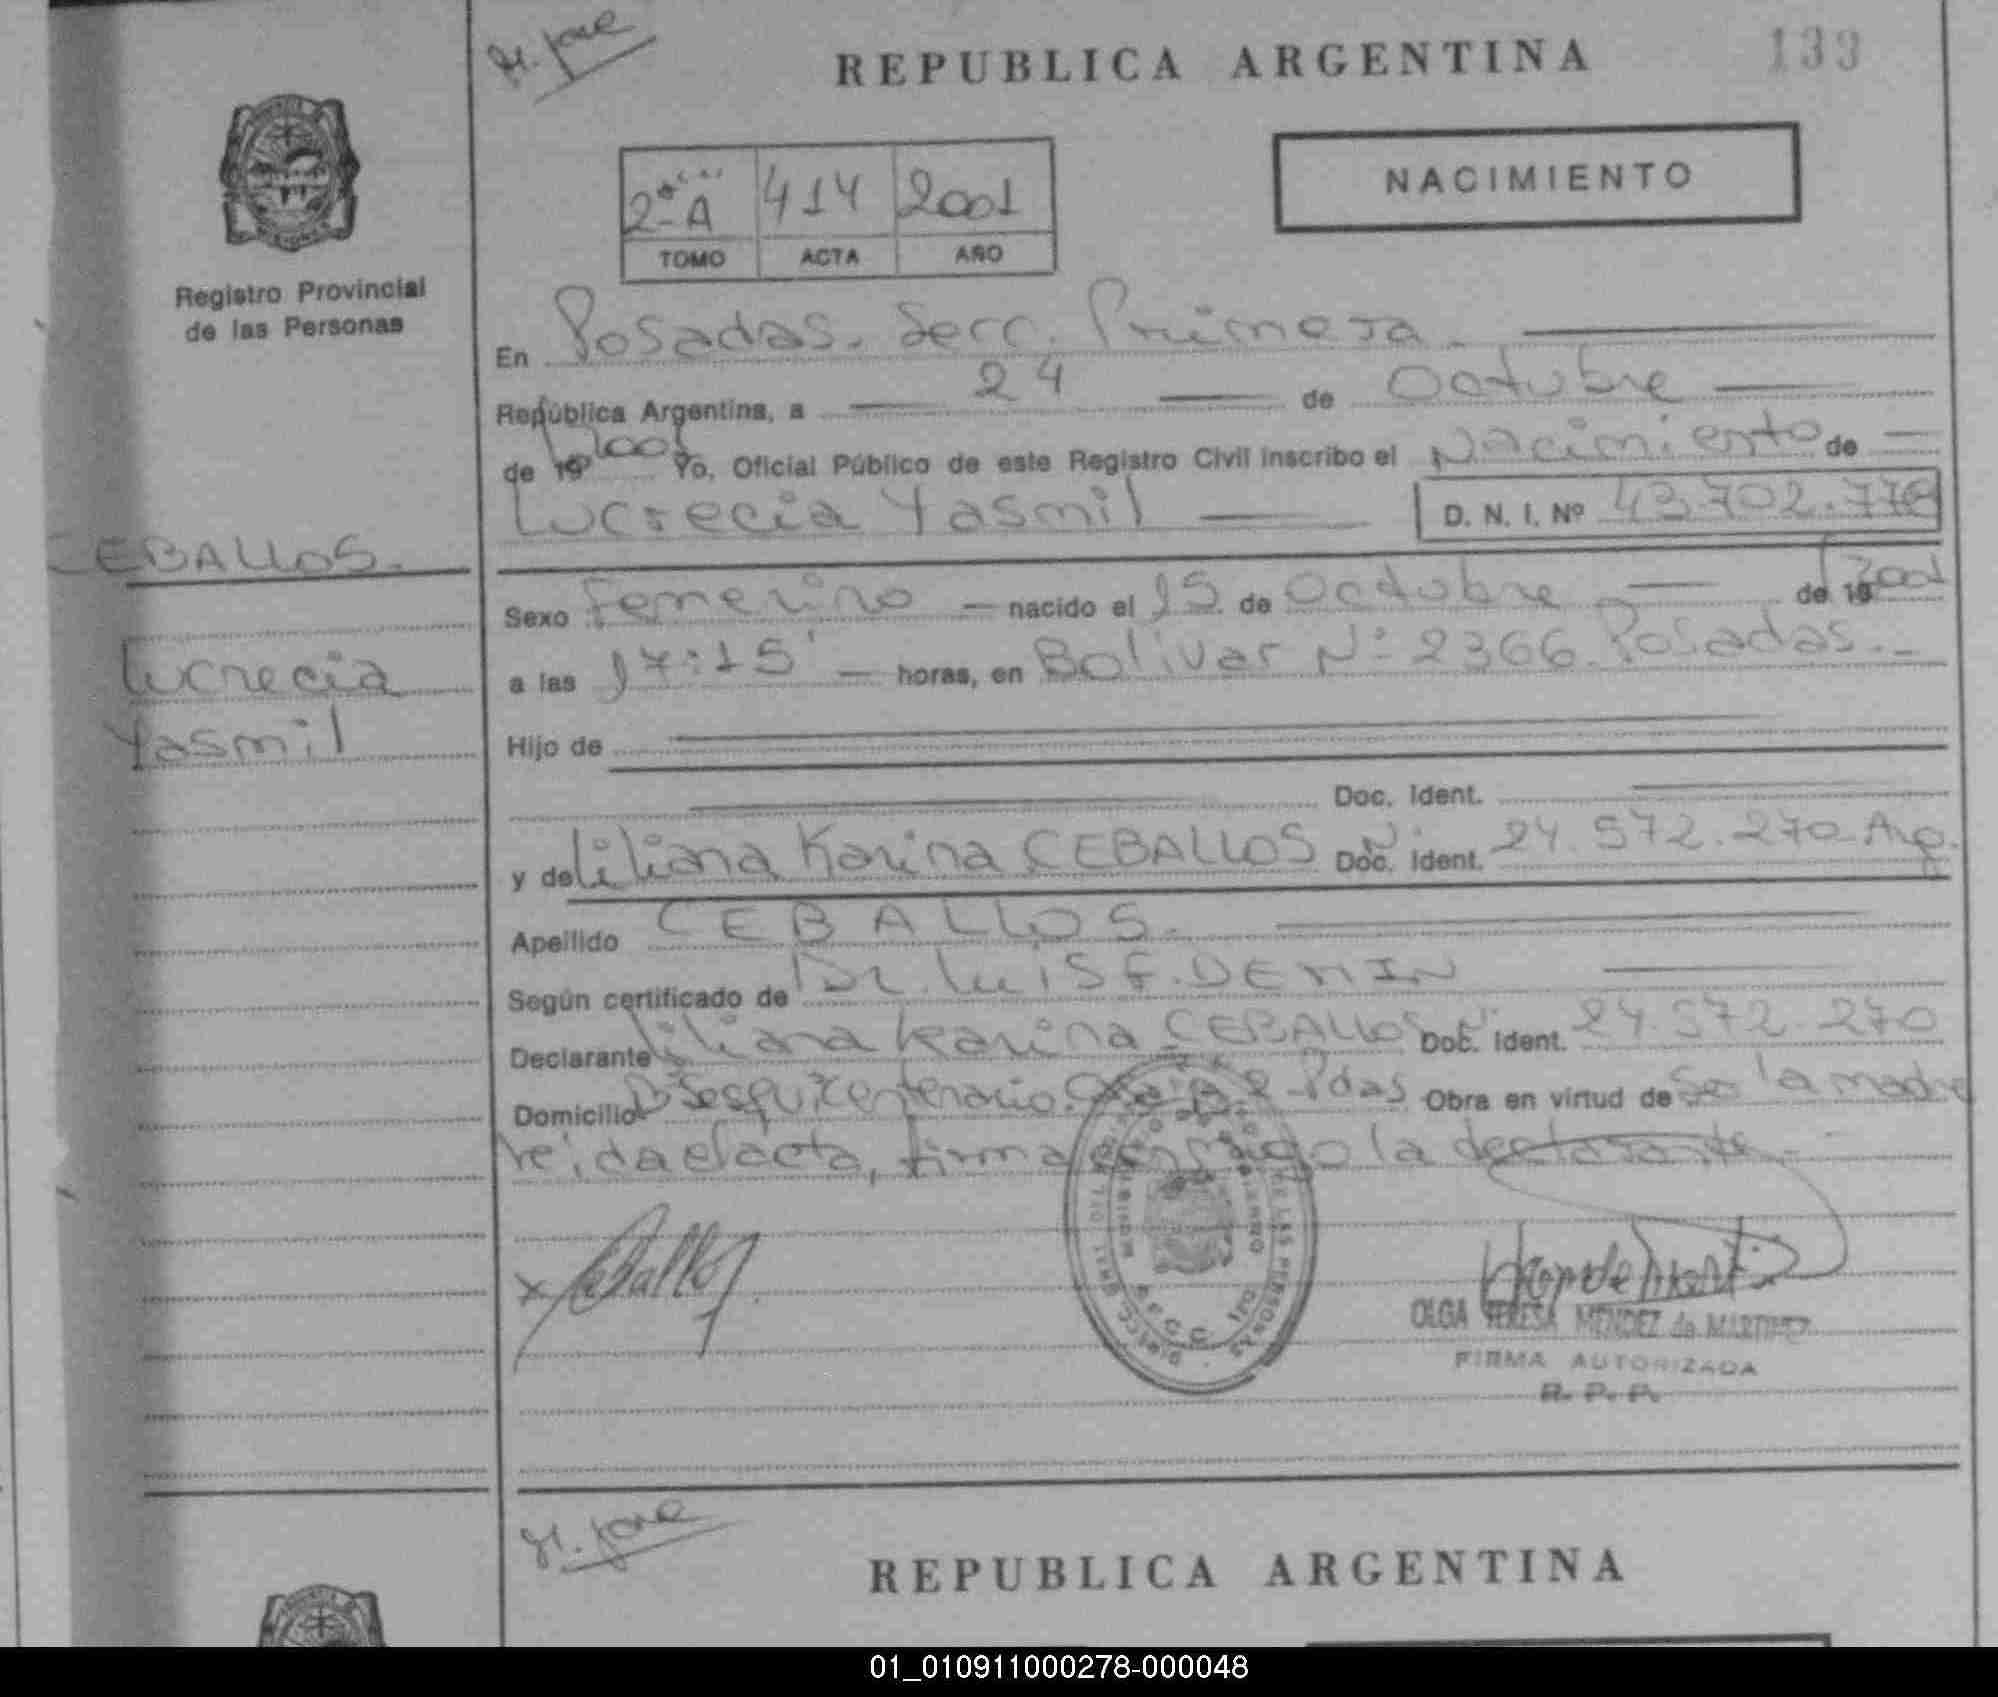 H. José
REPUBLICA ARGENTINA
133
NACIMIENTO
2º A 414 2001
TOMO ACTA AÑO
Registro Provincial
de las Personas
En Posadas. Secc. Primera.
República Argentina, a 24 de Octubre
de 19 2001 Yo, Oficial Público de este Registro Civil inscribo el Nacimiento de
Lucrecia Yasmil D. N. I. Nº 43.702.776
CEBALLOS.
Lucrecia
Yasmil
Sexo Femenino nacido el 15 de Octubre de 19 2001
a las 17:15' horas, en Bolivar Nº 2366. Posadas.-
Hijo de
Doc. Ident.
y de Liliana Karina CEBALLOS Doc. Ident. Nº 24.572.270 Arg.
Apellido CEBALLOS.
Según certificado de Dr. Luis F. DEMIN
Declarante Liliana Karina CEBALLOS Doc. Ident. Nº 24.572.270
Domicilio Bº Sesquicentenario. 2 - Pdas Obra en virtud de Ser la madre
leida el acta, firma conmigo la declarante.-
x Ceballos
OLGA TERESA MENDEZ de MARTINEZ
FIRMA AUTORIZADA
R. P. P.
H. José
REPUBLICA ARGENTINA
01_010911000278-000048